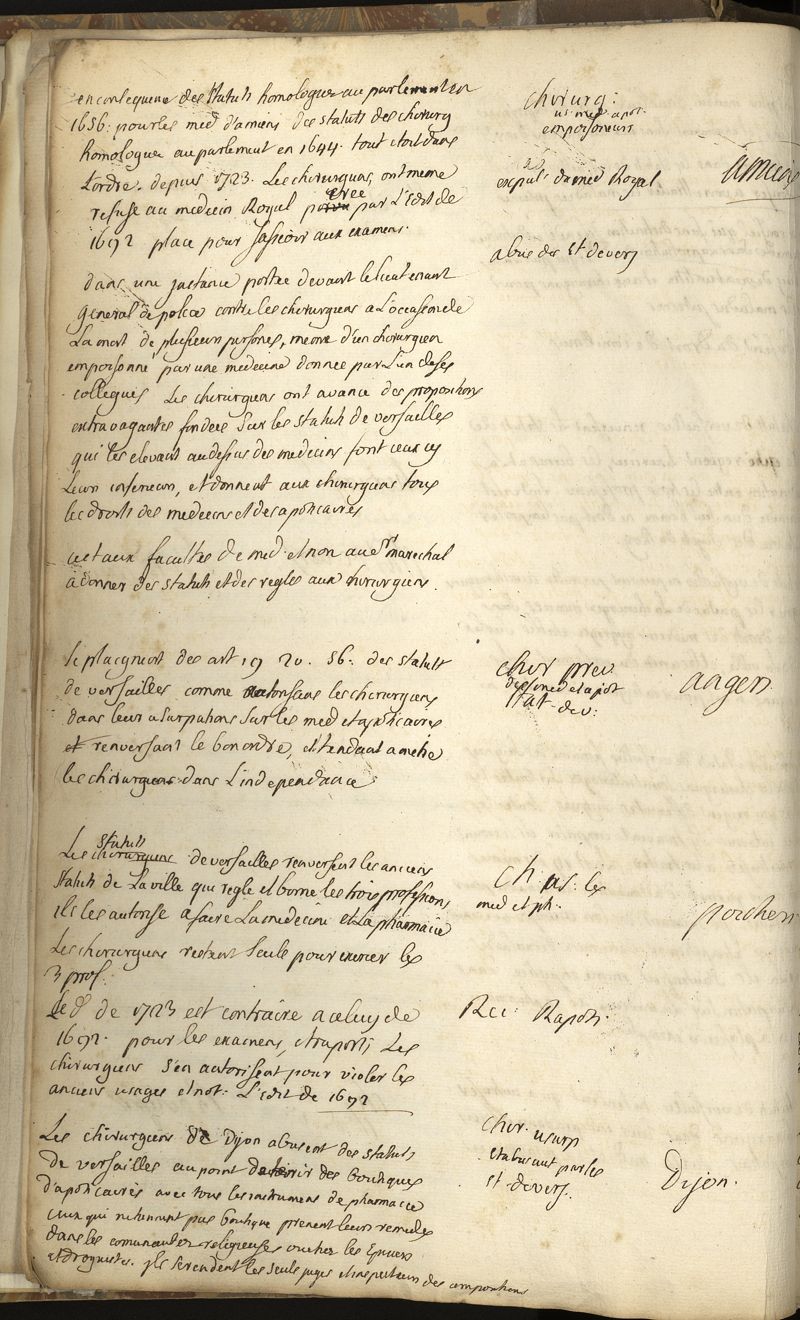 en consequence des statuts homologuez au parlement en
1656: pour les med d'amiens des statuts des chirurg
homologuez au parlement en 1644. tout etoit dans
l'ordre. depuis 1723. Les chirurgiens, ont meme
refusé au medecin Royal créé par L'Edit de
1692 place pour sasseoir aux examens.
chirurg:
us. med apot.
empoisoneurs
expuls du med Royal
amiens
abus des st de vers
dans une jnstance portée devant le lieutenant
general de police contre les chirurgiens a L'occasion de
La mort de plusieurs persones, meme d'un chirurgien
empoisonné par une medecine donnée par L'un de ses
collegues Les chirurgiens ont avancé des propositions
extravagantes fondées sur les statuts de versailles
qui les elevant au dessus des medecins font ceux cy
leurs inferieurs, et donnent aux chirurgiens tous
les droits des medecins et des apoticaires
cest aux facultés de med. et non au Sr marechal
a donner des statuts et des regles aux chirurgiens.
se plaignent des art 19 20. 56. des statuts
de versailles comme autorisans les chirurgiens
dans leurs usurpations sur les med et apoticaires
et renversant le bon ordre, et tendant a mettre
les chirurgiens dans L'independance
chir prev
des med et apot
stat. de v:
angers
Les statuts chirurgiens de versailles renversent les anciens
statuts de La ville qui regle et borne les trois professions
ils les autorise a faire La medecine et La pharmacie
Les chirurgiens restent seuls pour exercer les
3 prof.
Ch us: les
med et ph.
Le d. de 1723 est contraire a celuy de
1692. pour les examens, et raports Les
chirurgiens s'en autorisent pour violer les
anciens usages et not. L'edit de 1692
Rec: Raports.
Les chirurgiens de Dijon abusent des statuts
de versailles au point de tenir des boutiques
d'apoticaires avec tous les instrumens de pharmacie
ceux qui ne tiennent pas boutique prenent leurs remedes
dans les comunautez religieuses ou chez les Epiciers
et droguistes. jls se rendent les seuls juges et inspecteurs des
chir. usurp
et abusant par les
st de vers.
Dijon.